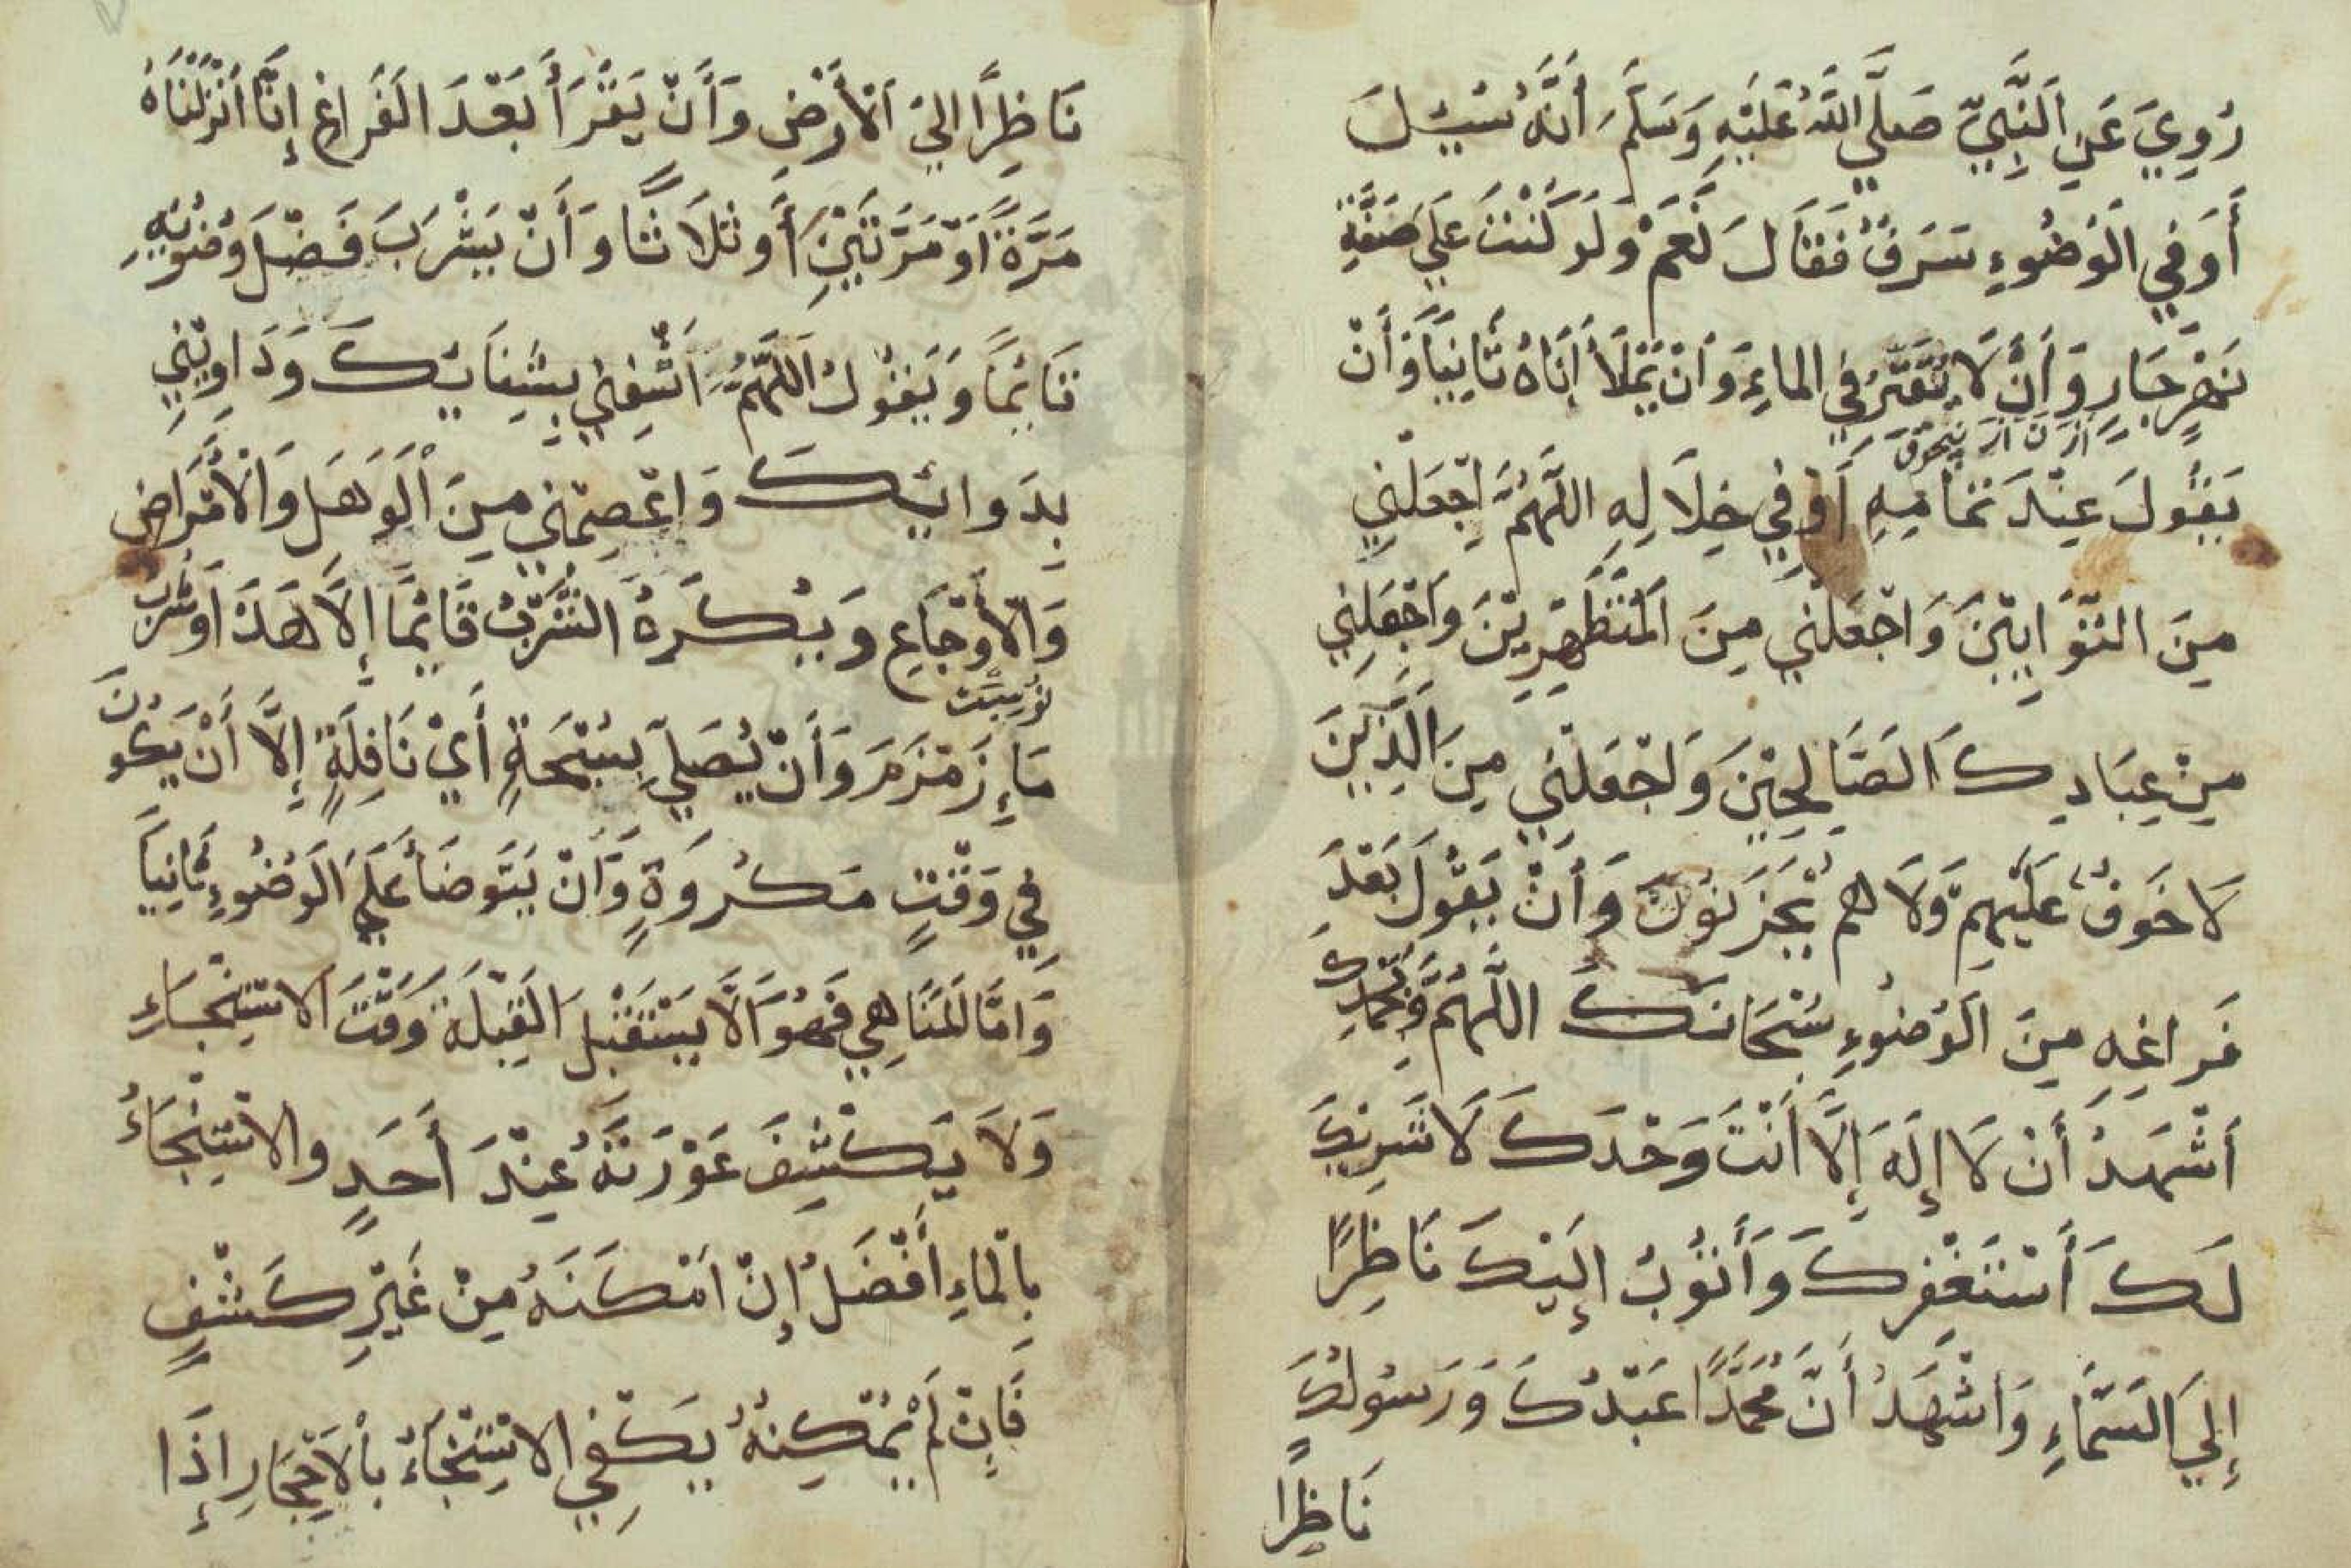 رُوِيَ عَنِ النَّبِيِّ صَلَّي اللّٰهُ عَلَيْهِ وَسَلَّمَ أَنَّهُ سُئِلَ
أَوَفِي الْوُضُوءِ سَرَفٌ فَقَالَ نَعَمْ وَلَوْ كُنْتَ عَلَي ضَفَّةِ
نَهْرٍ جَارٍ وَأَنْ لَا يُقَتِّرَ فِي الماءِ وَأَنْ يَمْلَأَ إِنَاهُ ثَانِيًا وَأَنْ
يَقُولَ عِنْدَ تَمَامِهِ أَوْ فِي خِلَالِهِ اللَّهُمَّ اجْعَلْنِي
مِنَ التَّوَّابِيْنَ وَاجْعَلْنِي مِنَ الْمُتَطَهِّرِيْنَ وَاجْعَلْنِي
مِنْ عِبَادِكَ الصَّالِحِيْنَ وَاجْعَلْنِي مِنَ الَّذِيْنَ
لَا خَوْفٌ عَلَيْهِمْ وَلَا هُمْ يَحْزَنُونَ وَأَنْ يَقُولَ بَعْدَ
فَرَاغِهِ مِنَ الْوُضُوءِ سُبْحَانَكَ اللَّهُمَّ وَبِحَمْدِكَ
أَشْهَدُ أَنْ لَا إِلَهَ إِلَّا أَنْتَ وَحْدَكَ لَا شَرِيْكَ
لَكَ أَسْتَغْفِرُكَ وَأَتُوبُ إِلَيْكَ نَاظِرًا
إِلَيَ السَّمَاءِ وَاشْهَدُ أَنَّ مُحَمَّدًا عَبْدُكَ وَرَسُولُكَ
نَاظِرًا
نَاظِرًا اليَ الْأَرْضِ وَأَنْ يَقْرَأَ بَعْدَ الْفَرَاغِ إِنَّا أَنْزَلْنَاهُ
مَرَّةً أَوْ مَرَّتَيْنِ أَو ثلَاثًا وَأَنْ يَشْرَبَ فَضْلَ وُضُوئِهِ
قَائِمًا وَيَقُولُ اَللَّهُمَّ اشْفِنِي بِشِفَائِكَ وَدَاوِنِي
بِدَوائِكَ وَاعْصِمْنِي مِنَ الْوَهَلِ وَالْأَمْرَاضِ
وَالْأَوْجَاعِ وَيُكْرَهُ الشُّرْبُ قَائِمًا إِلَّا هَذَا وَشُرْبُ
مَاءِ زَمْزَمَ وَأَنْ يُصَلِّيَ بِسُبْحَةٍ أَيْ نَافِلَةٍ إِلَّا أَنْ يَكُونَ
فِي وَقْتٍ مَكْرُوةٍ وَأَنْ يَتَوضَأَ عَلَي الْوُضُوءِ ثَانِيًا
وَامَّا الْمَنَاهِي فَهُوَ أَلَّا يَسْتَقْبِلَ الْقِبْلَةَ وَقْتَ الاسْتِنْجَاءِ
وَلَا يَكْشِفَ عَوْرَتَهُ عِنْدَ أَحَدٍ والاسْتِنْجَاءُ
بِالْماءِ أَفْضَلُ إِنْ امْكَنَهُ مِنْ غَيْرِ كَشْفٍ
فَإِنْ لَمْ يُمْكِنْهُ يَكْفِي الاسْتِنْجَاءُ بِالْأَحْجَارِ إِذَا